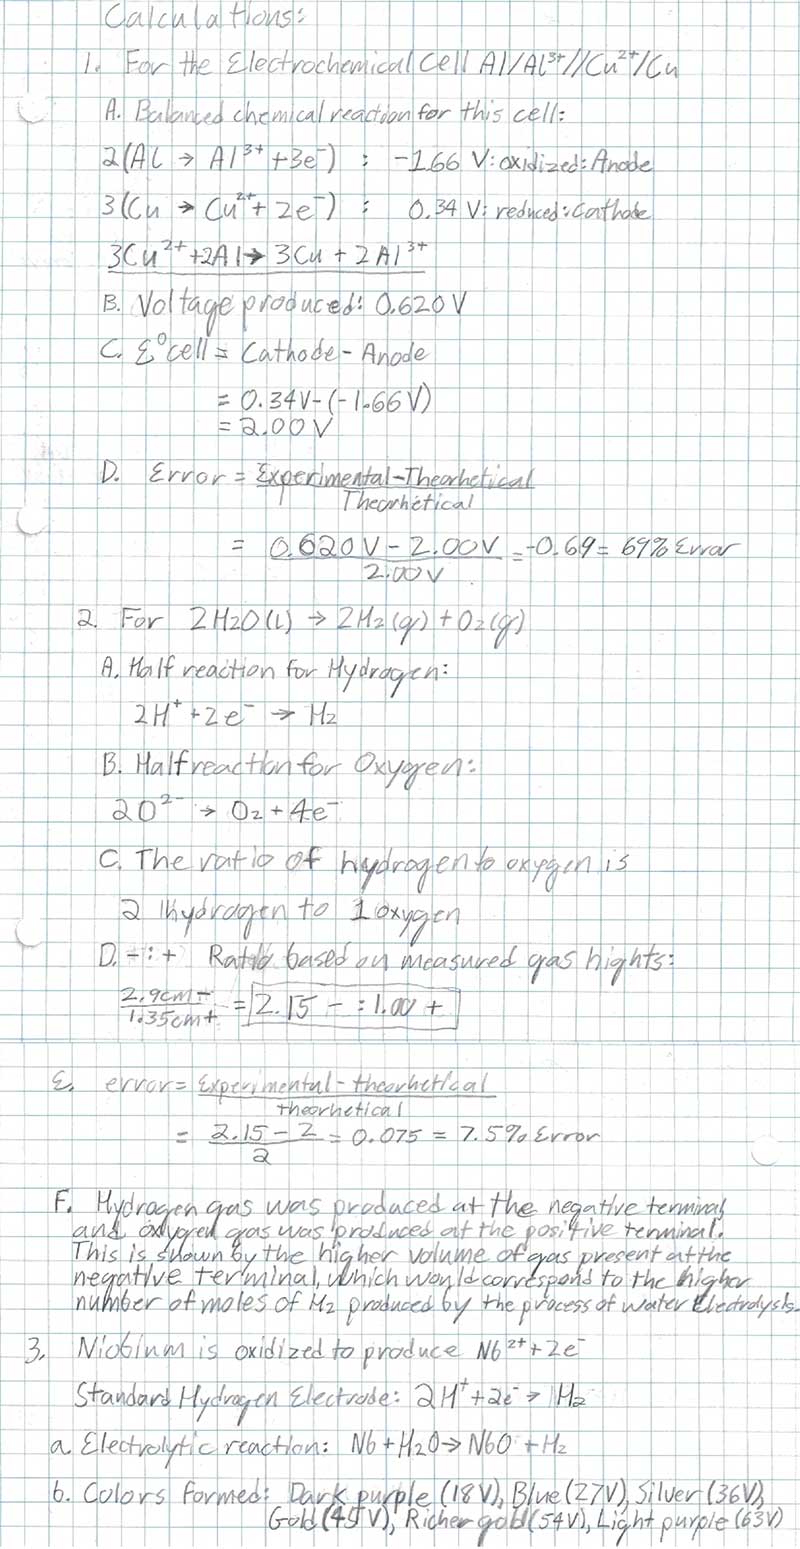 Calculations:
1. For the Electrochemical Cell Al/Al³⁺//Cu²⁺/Cu
A. Balanced chemical reaction for this cell:
2(Al → Al³⁺ + 3e⁻) : -1.66 V: oxidized: Anode
3(Cu → Cu²⁺ + 2e⁻) : 0.34 V: reduced: Cathode
3Cu²⁺ + 2Al → 3Cu + 2Al³⁺
B. Voltage produced: 0.620 V
C. Ɛ°cell = Cathode - Anode
= 0.34V - (-1.66V)
= 2.00V
D. Error = Experimental - Theorhetical
Theorhetical
= 0.620V - 2.00V = -0.69 = 69% Error
2.00V
2. For 2H2O(l) → 2H₂(g) + O₂(g)
A. Half reaction for Hydrogen:
2H⁺ + 2e⁻ → H₂
B. Half reaction for Oxygen:
2O²⁻ → O₂ + 4e⁻
C. The ratio of hydrogen to oxygen is
2 hydrogen to 1 oxygen
D. - : + Ratio based on measured gas hights:
2.9cm - = 2.15 - : 1.00 +
1.35cm +
E. error = Experimental - theorhetical
theorhetical
= 2.15 - 2 = 0.075 = 7.5% Error
2
F. Hydrogen gas was produced at the negative terminal
and oxygen gas was produced at the positive terminal.
This is shown by the higher volume of gas present at the
negative terminal, which would correspond to the higher
number of moles of H₂ produced by the process of water Electrolysis.
3. Niobium is oxidized to produce Nb²⁺ + 2e⁻
Standard Hydrogen Electrode: 2H⁺ + 2e⁻ → H₂
a. Electrolytic reaction: Nb + H₂O → NbO + H₂
b. Colors formed: Dark purple (18V), Blue (27V), Silver (36V),
Gold (45V), Richer gold (54V), Light purple (63V)